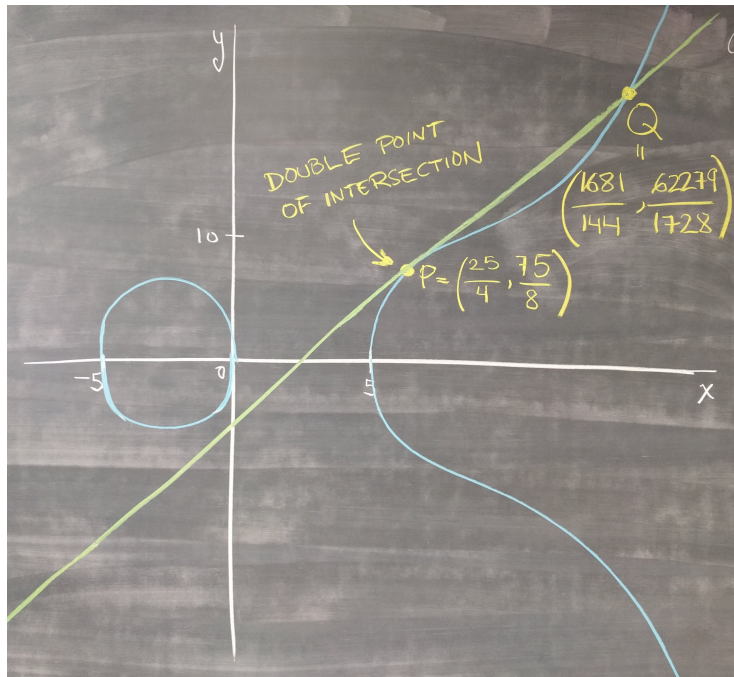 y
DOUBLE POINT
OF INTERSECTION
Q
=
(1681/144, 62279/1728)
10
P=(25/4, 75/8)
-5
0
5
x